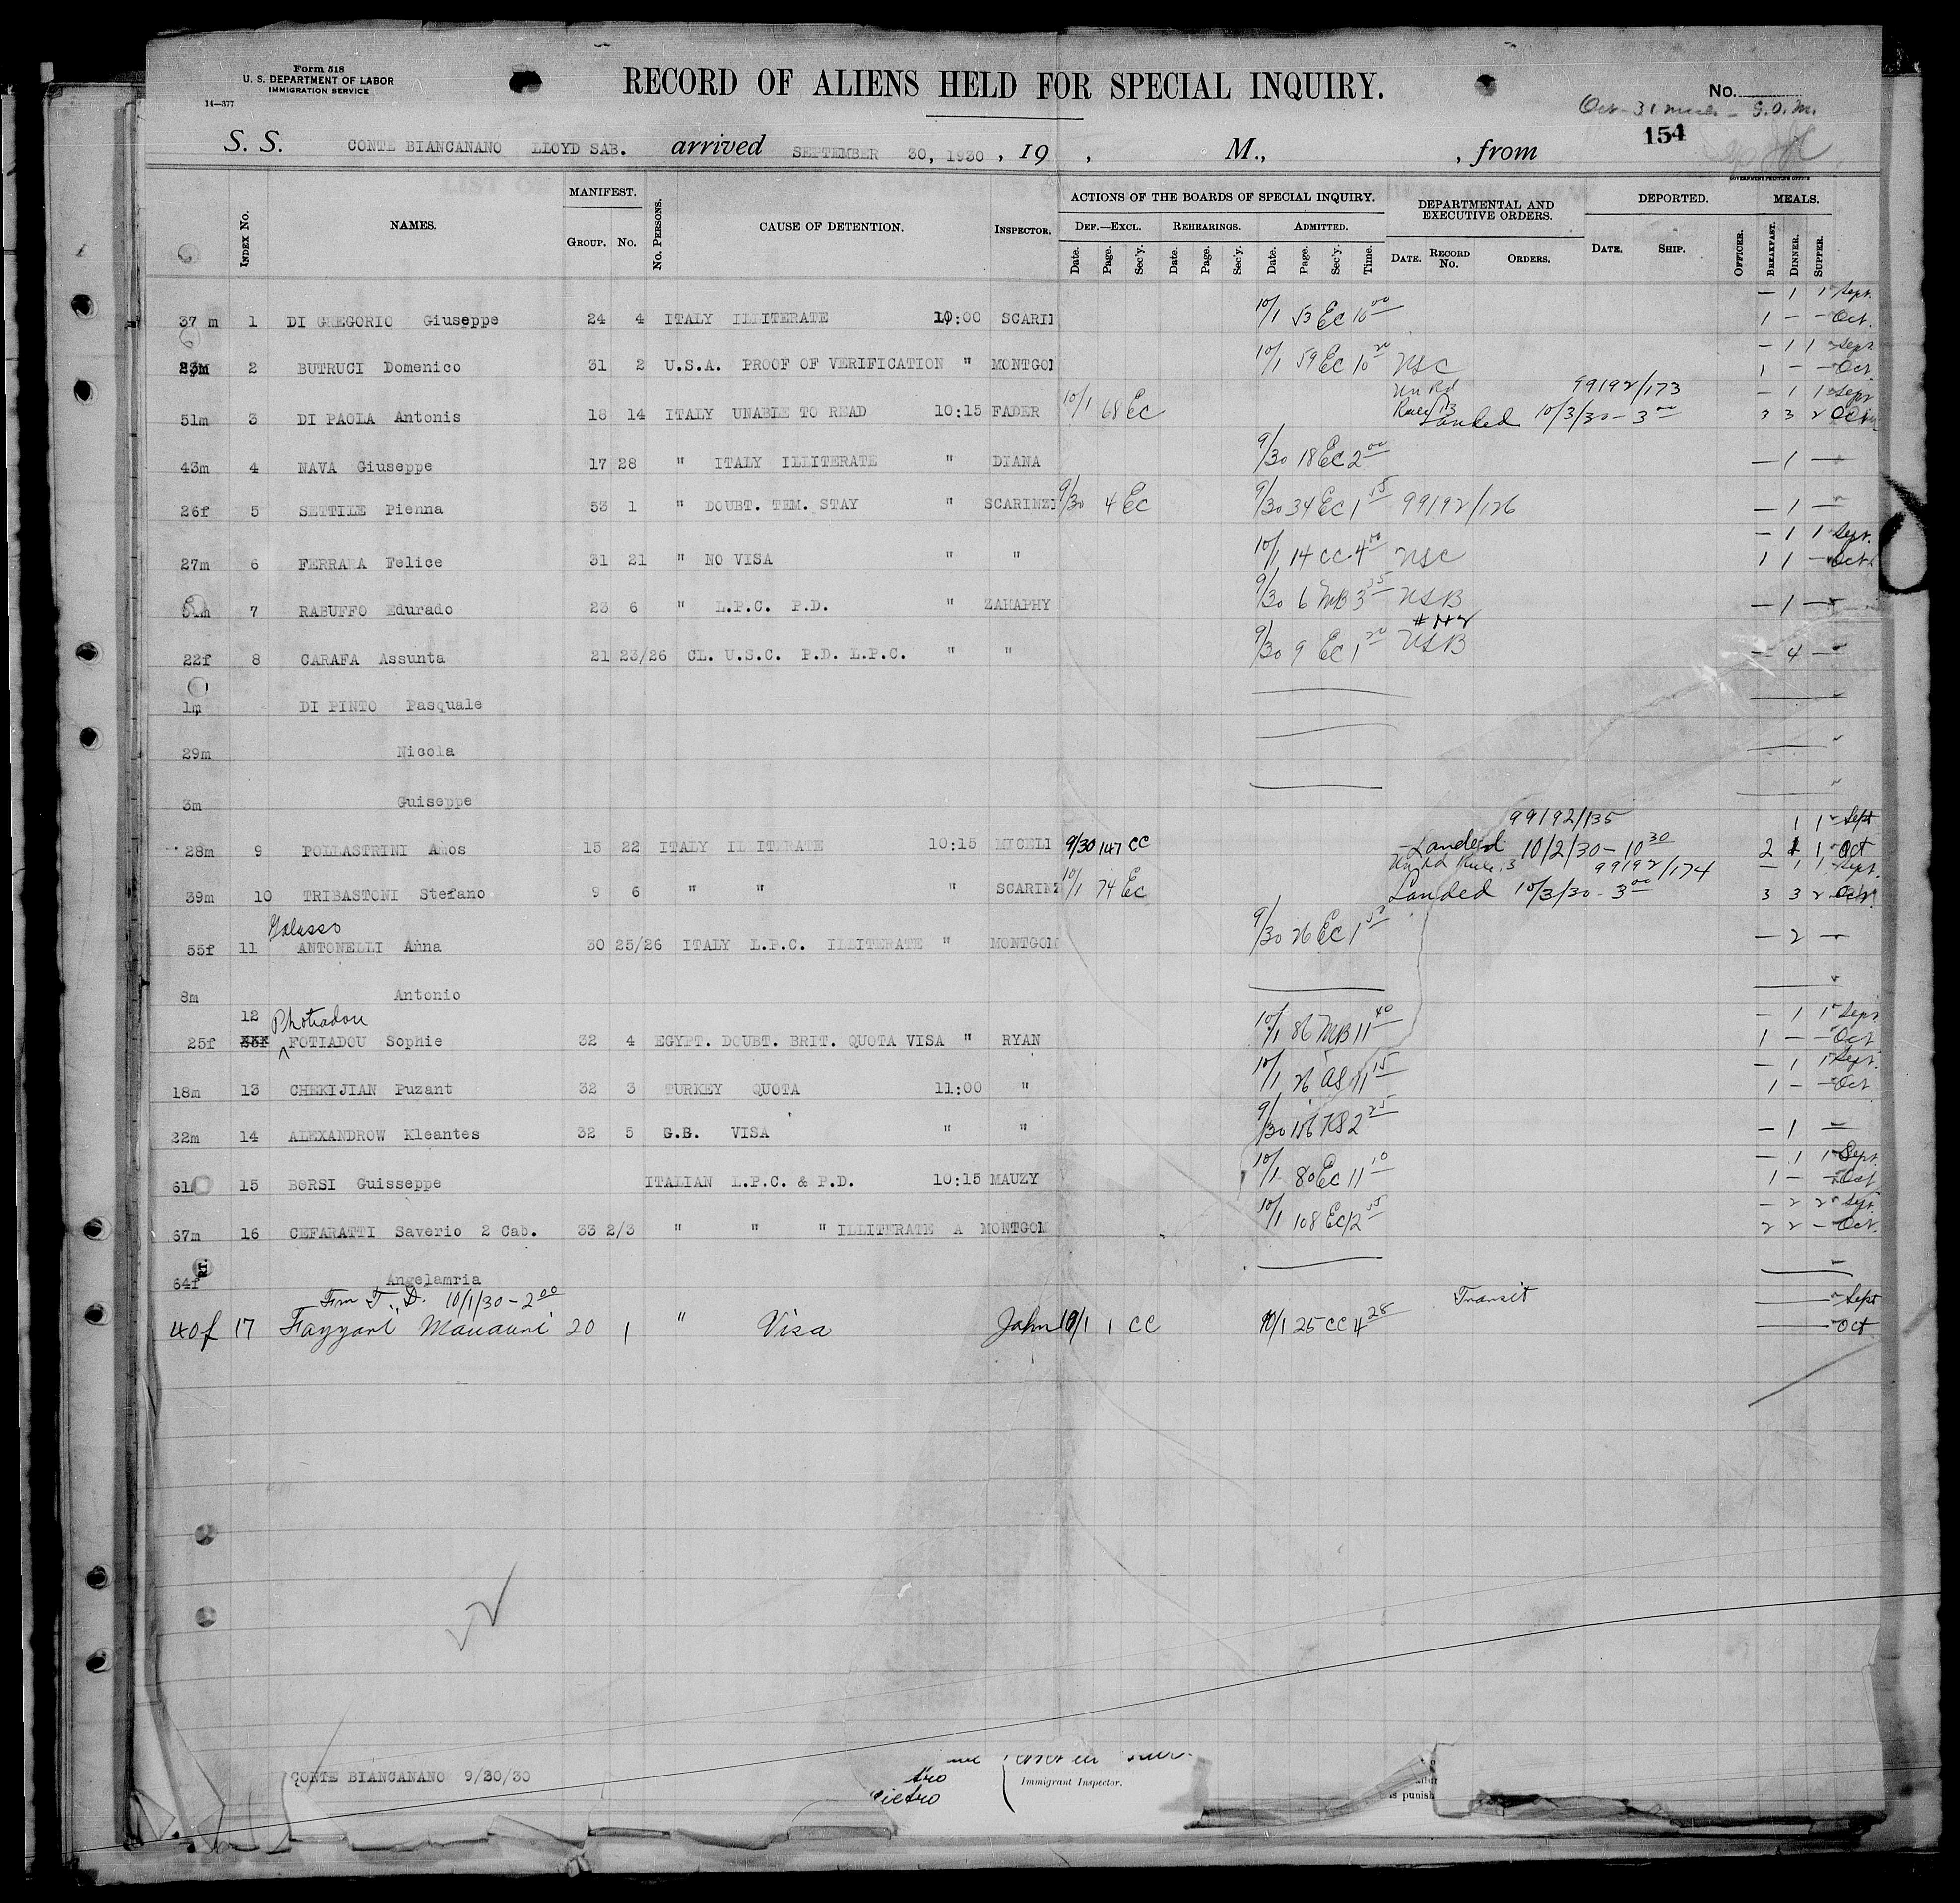 Form 518
U. S. DEPARTMENT OF LABOR
IMMIGRATION SERVICE
14—377
RECORD OF ALIENS HELD FOR SPECIAL INQUIRY.
No.
Oct - 31
154
S. S. CONTE BIANCANANO LLOYD SAB. arrived SEPTEMBER 30, 1930 , 19 , M., , from
GOVERNMENT PRINTING OFFICE
INDEX No. NAMES. MANIFEST. GROUP. No. No. PERSONS. CAUSE OF DETENTION. INSPECTOR. ACTIONS OF THE BOARDS OF SPECIAL INQUIRY. DEF.—EXCL. Date. Page. Sec'y. REHEARINGS. Date. Page. Sec'y. ADMITTED. Date. Page. Sec'y. Time. DEPARTMENTAL AND EXECUTIVE ORDERS. DATE. RECORD No. ORDERS. DEPORTED. DATE. SHIP. OFFICER. MEALS. BREAKFAST. DINNER. SUPPER.
— 1 1 Sept.
37 m 1 DI GREGORIO Giuseppe 24 4 ITALY ILLITERATE 10:00 SCARII 10/1 53 Ec 10 00 1 — — Oct.
— 1 1 Sept
23m 2 BUTRUCI Domenico 31 2 U.S.A. PROOF OF VERIFICATION " MONTGOM 10/1 59 Ec 10 20 NSC 1 — — Oct
Un Rd 99192/173 — 1 1 Sept
51m 3 DI PAOLA Antonis 18 14 ITALY UNABLE TO READ 10:15 FADER 10/1 68 Ec Rule 13 Landed 10/3/30 - 3 00 3 3 2 Oct
43m 4 NAVA Giuseppe 17 28 " ITALY ILLITERATE " DIANA 9/30 18 Ec 2 00 — 1 —
26f 5 SETTILE Pienna 53 1 " DOUBT. TEM. STAY " SCARINZI 9/30 4 Ec 9/30 34 Ec 1 55 99192/126 — 1 —
— 1 1 Sept.
27m 6 FERRARA Felice 31 21 " NO VISA " " 10/1 14 CC 4 00 NSC 1 1 — Oct.
51m 7 RABUFFO Edurado 23 6 " L.P.C. P.D. " ZAHAPHY 9/30 6 MB 3 35 NSB — 1 —
22f 8 CARAFA Assunta 21 23/26 CL. U.S.C. P.D. L.P.C. " " 9/30 9 Ec 1 20 NSB — 4 —
1m DI PINTO Pasquale
29m Nicola
3m Guiseppe
99192/135 1 1 Sept
28m 9 POLLASTRINI Amos 15 22 ITALY ILLITERATE 10:15 MICELI 9/30 147 CC Landed 10/2/30 - 10 30 2 1 1 Oct
Un Rd Rule 13 99192/174 — 1 1 Sept.
39m 10 TRIBASTONI Stefano 9 6 " " " SCARINZ 10/1 74 Ec Landed 10/3/30 - 3 00 3 3 2 Oct
Galasso
55f 11 ANTONELLI Anna 30 25/26 ITALY L.P.C. ILLITERATE " MONTGOM 9/30 26 Ec 1 50 — 2 —
8m Antonio
12 Photiadou — 1 1 Sept
25f FOTIADOU Sophie 32 4 EGYPT. DOUBT. BRIT. QUOTA VISA " RYAN 10/1 86 MB 11 40 1 — — Oct
— 1 1 Sept.
18m 13 CHEKIJIAN Puzant 32 3 TURKEY QUOTA 11:00 " 10/1 26 AS 11 15 1 — — Oct
22m 14 ALEXANDROW Kleantes 32 5 G.B. VISA " " 9/30 156 KS 2 25 — 1 —
— 1 1 Sept.
61 15 BORSI Guisseppe ITALIAN L.P.C. & P.D. 10:15 MAUZY 10/1 80 Ec 11 10 1 — — Oct
— 2 2 Sept.
67m 16 CEFARATTI Saverio 2 Cab. 33 2/3 " " " ILLITERATE A MONTGOM 10/1 108 Ec 12 55 2 2 — Oct.
64f RT. Angelamria
Frm T. D. 10/1/30 - 2 00 Transit Sept
40f 17 Fayyani Manauni 20 1 " Visa John 10/1 1 CC 10/1 25 CC 4 28 Oct
CONTE BIANCANANO 9/30/30
tro
Pietro
Immigrant Inspector.
is punish